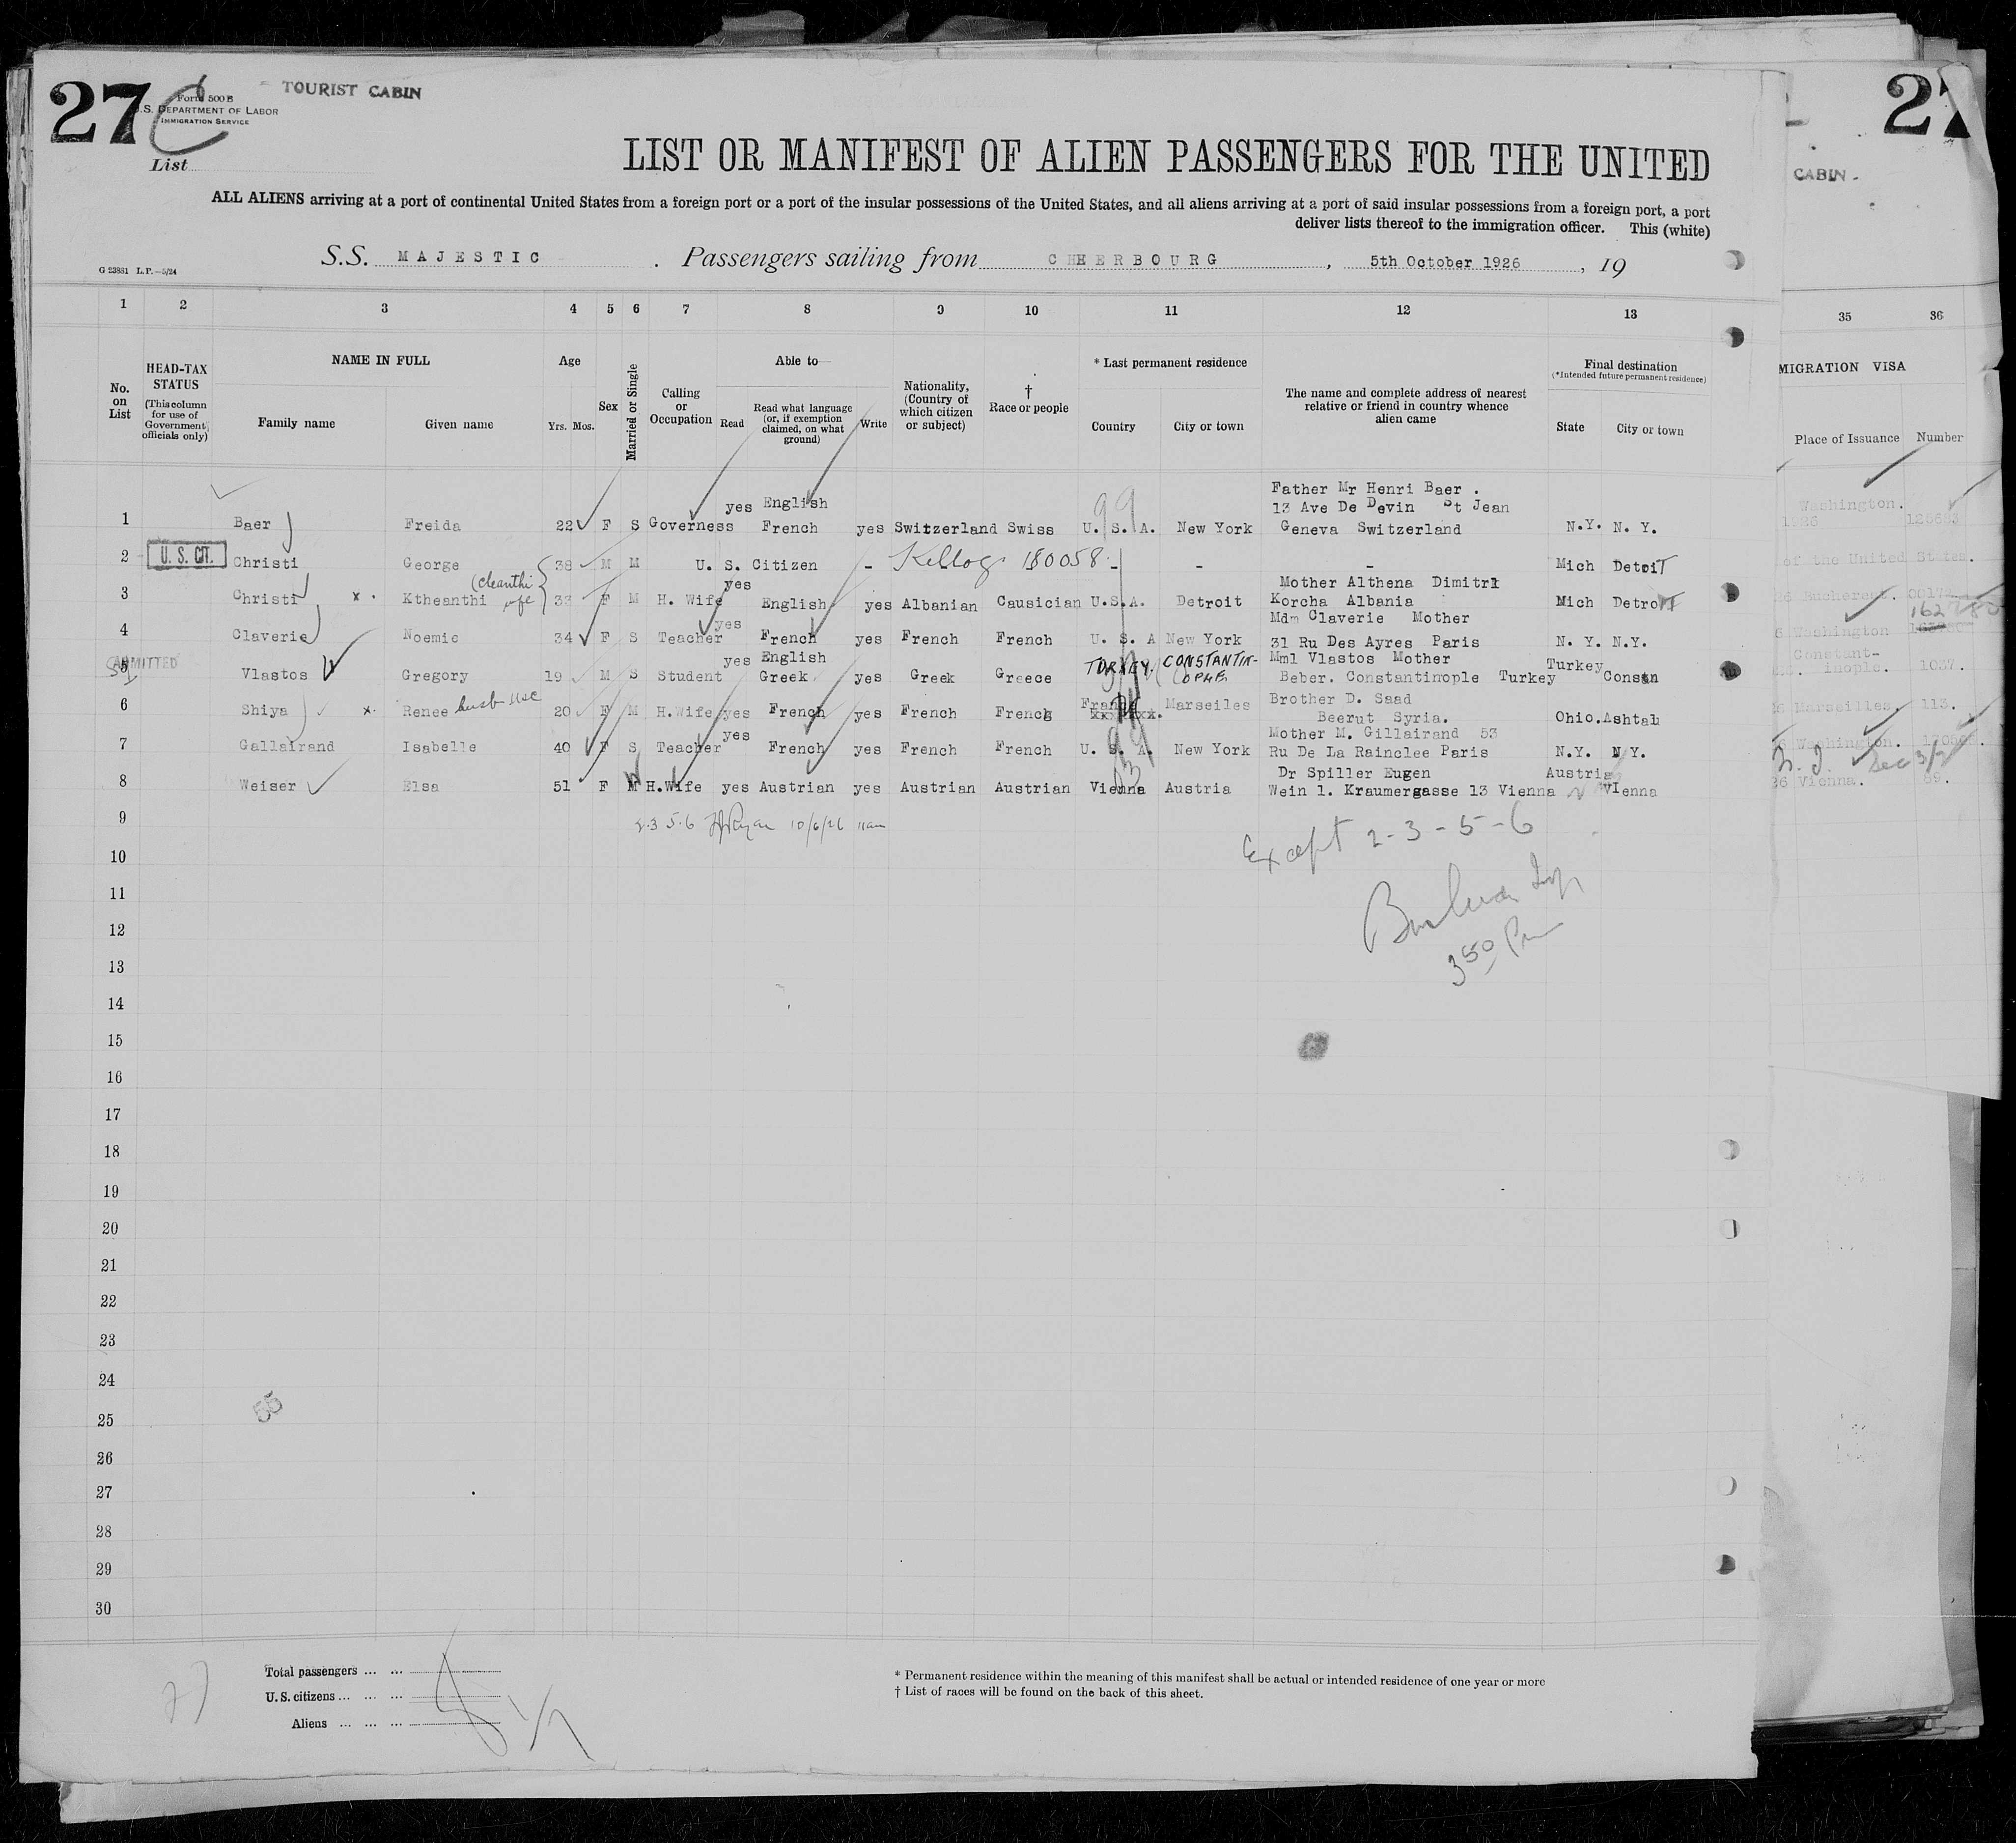 27
Form 500 B
U.S. DEPARTMENT OF LABOR
IMMIGRATION SERVICE
TOURIST CABIN
List
LIST OR MANIFEST OF ALIEN PASSENGERS FOR THE UNITED
ALL ALIENS arriving at a port of continental United States from a foreign port or a port of the insular possessions of the United States, and all aliens arriving at a port of said insular possessions from a foreign port, a port
deliver lists thereof to the immigration officer. This (white)
G 23881 L.P.—5/24
S.S. MAJESTIC. Passengers sailing from CHERBOURG, 5th October 1926, 19
1 2 3 4 5 6 7 8 9 10 11 12 13
No. on List
HEAD-TAX STATUS (This column for use of Government officials only)
NAME IN FULL
Family name Given name
Age
Yrs. Mos.
Sex
Married or Single
Calling or Occupation
Able to
Read
Read what language (or, if exemption claimed, on what ground)
Write
Nationality, (Country of which citizen or subject)
† Race or people
* Last permanent residence
Country City or town
The name and complete address of nearest relative or friend in country whence alien came
Final destination
(*Intended future permanent residence)
State City or town
Father Mr Henri Baer .
yes English 13 Ave De Devin St Jean
1 Baer Freida 22 F S Governess French yes Switzerland Swiss U. S. A. New York Geneva Switzerland N.Y. N. Y.
2 U. S. CIT. Christi George 38 M M U. S. Citizen - Kellog 180058 - - - Mich Detroit
(Cleanthi wife yes Mother Althena Dimitri
3 Christi x . Ktheanthi 33 F M H. Wife English yes Albanian Causician U.S.A. Detroit Korcha Albania Mich Detroit
yes Mdm Claverie Mother
4 Claverie Noemie 34 F S Teacher French yes French French U. S. A New York 31 Ru Des Ayres Paris N. Y. N.Y.
ADMITTED yes English TURKEY. CONSTANTINOPLE. Mml Vlastos Mother Turkey
5 Vlastos Gregory 19 M S Student Greek yes Greek Greece Beber. Constantinople Turkey Constn
Brother D. Saad
6 Shiya x. Renee 20 F M H.Wife yes French yes French French France Marseiles Beerut Syria. Ohio. Ashtab
yes Mother M. Gillairand 53
7 Gallairand Isabelle 40 F S Teacher French yes French French U. S. A. New York Ru De La Rainclee Paris N.Y. N Y.
Dr Spiller Eugen Austria
8 Weiser Elsa 51 F M H.Wife yes Austrian yes Austrian Austrian Vienna Austria Wein 1. Kraumergasse 13 Vienna VIenna
9
2.3 5.6 10/6/26 11am
Except 2-3-5-6
10
11
12
350 Pm
13
14
15
16
17
18
19
20
21
22
23
24
55
25
26
27
28
29
30
Total passengers ... ...
U. S. citizens ... ... ...
Aliens ... ... ...
* Permanent residence within the meaning of this manifest shall be actual or intended residence of one year or more
† List of races will be found on the back of this sheet.
27
CABIN
35 36
MIGRATION VISA
Place of Issuance Number
Washington.
1926
of the United States.
26 Bucharest.
162
6 Washington
Constant-
inople. 1037.
26 Marseilles. 113.
Washington.
26 Vienna. 89.